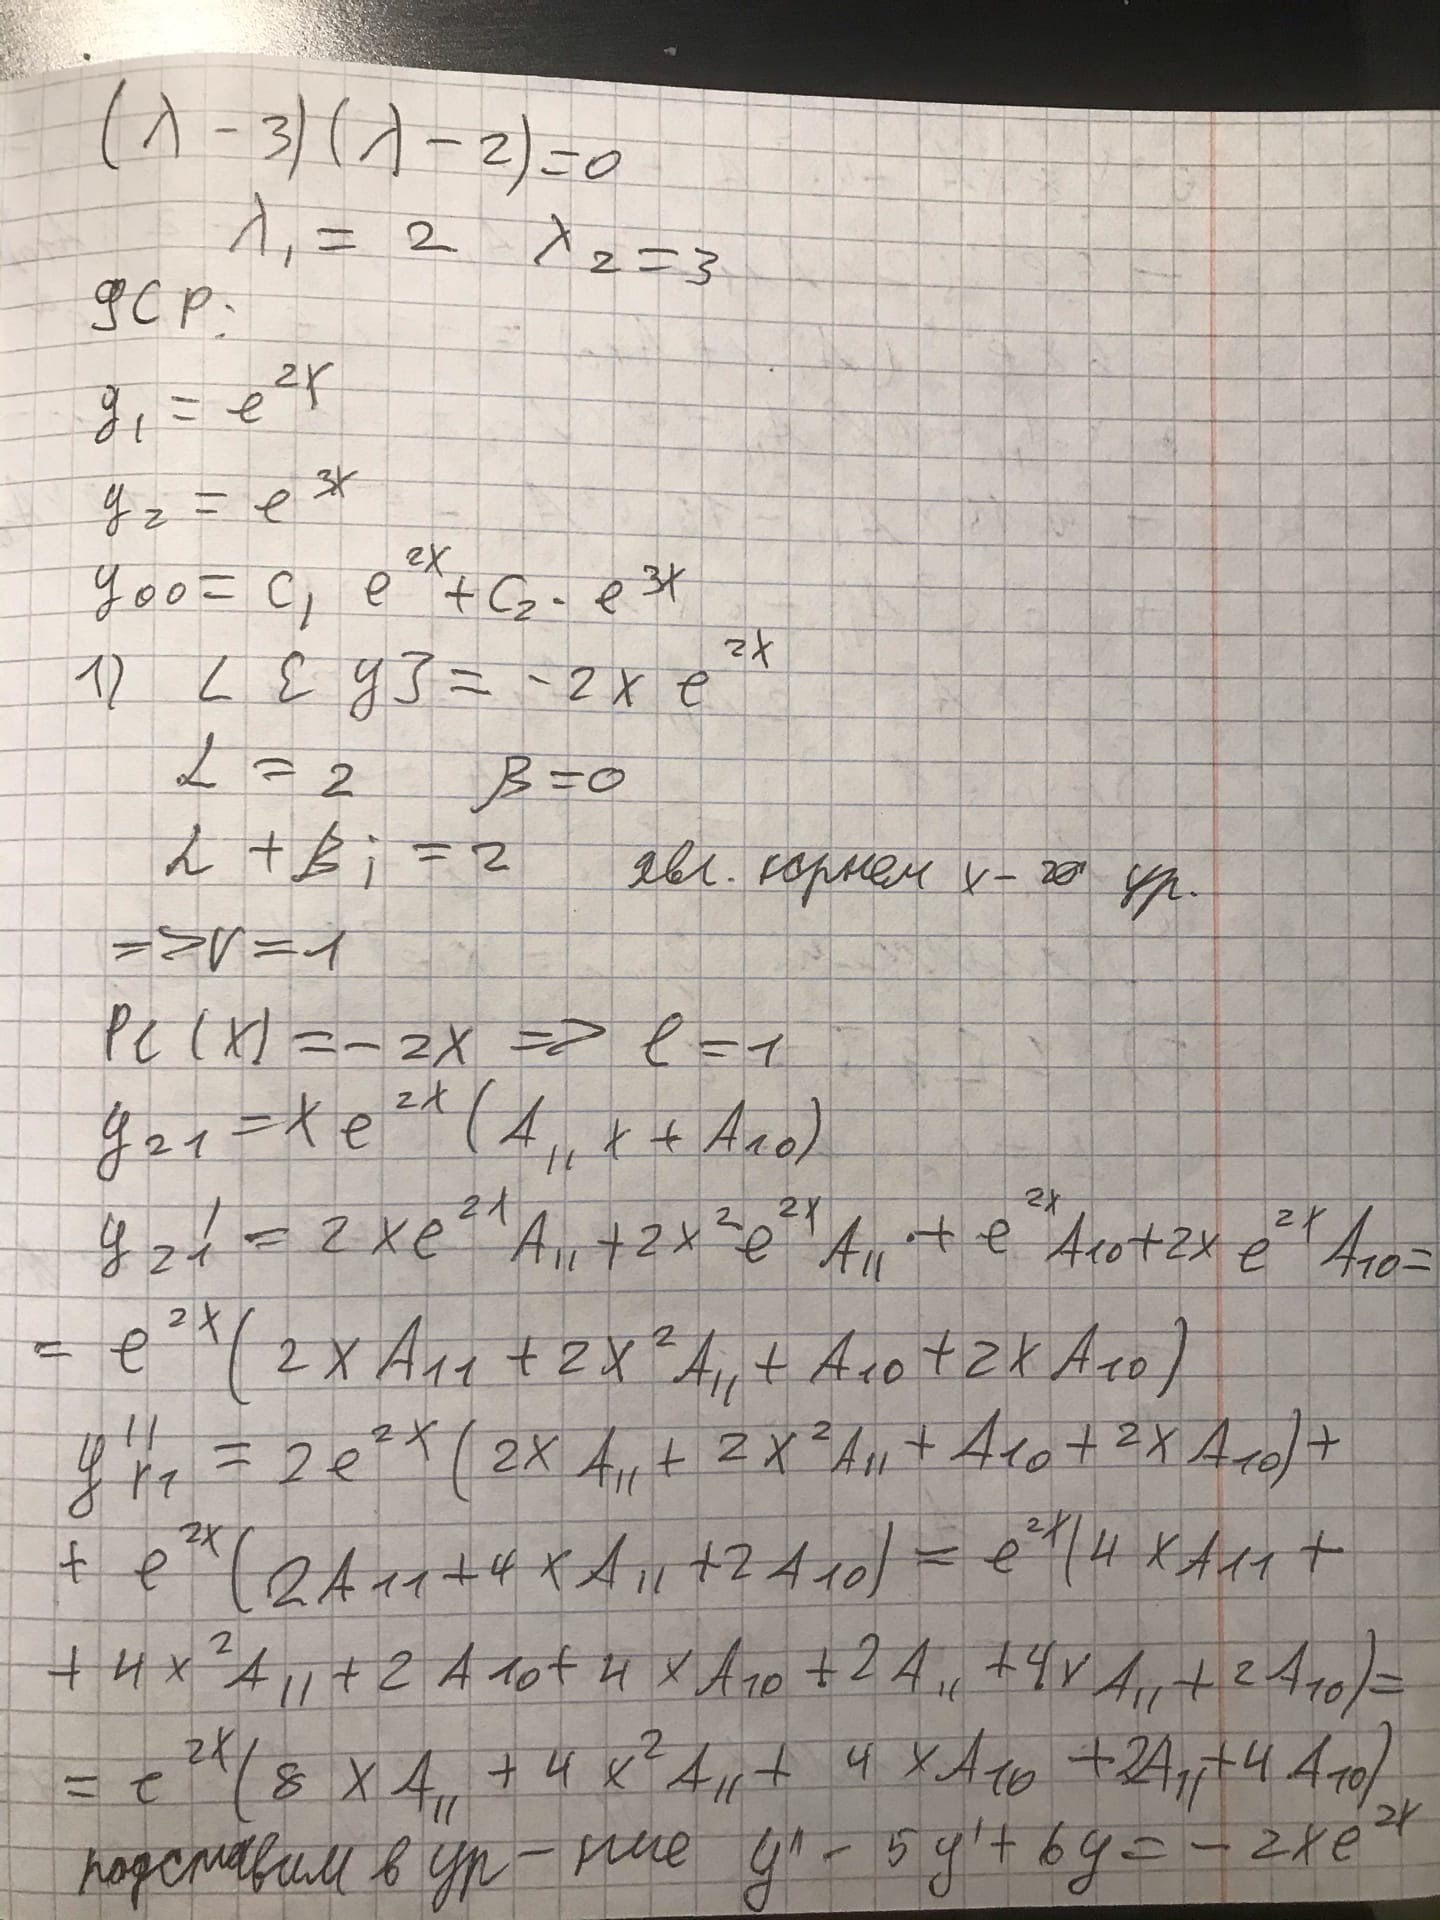 (λ - 3)(λ - 2) = 0
λ₁ = 2 λ₂ = 3
ФСР:
y₁ = e^{2x}
y₂ = e^{3x}
y₀₀ = C₁ e^{2x} + C₂ · e^{3x}
1) L[y] = -2x e^{2x}
α = 2 β = 0
α + βi = 2 явл. корнем х- ур.
=> r = 1
Pℓ(x) = -2x => ℓ = 1
y₂₁ = x e^{2x} (A₁₁ x + A₁₀)
y₂₁' = 2xe^{2x} A₁₁ + 2x² e^{2x} A₁₁ + e^{2x} A₁₀ + 2x e^{2x} A₁₀ =
= e^{2x} (2xA₁₁ + 2x² A₁₁ + A₁₀ + 2x A₁₀)
y''_{r1} = 2e^{2x} (2x A₁₁ + 2x² A₁₁ + A₁₀ + 2x A₁₀) +
+ e^{2x} (2A₁₁ + 4x A₁₁ + 2A₁₀) = e^{2x} (4xA₁₁ +
+ 4x² A₁₁ + 2A₁₀ + 4xA₁₀ + 2A₁₁ + 4x A₁₁ + 2A₁₀) =
= e^{2x} (8xA₁₁ + 4x² A₁₁ + 4xA₁₀ + 2A₁₁ + 4A₁₀)
подставим в ур-ние y'' - 5y' + 6y = -2xe^{2x}